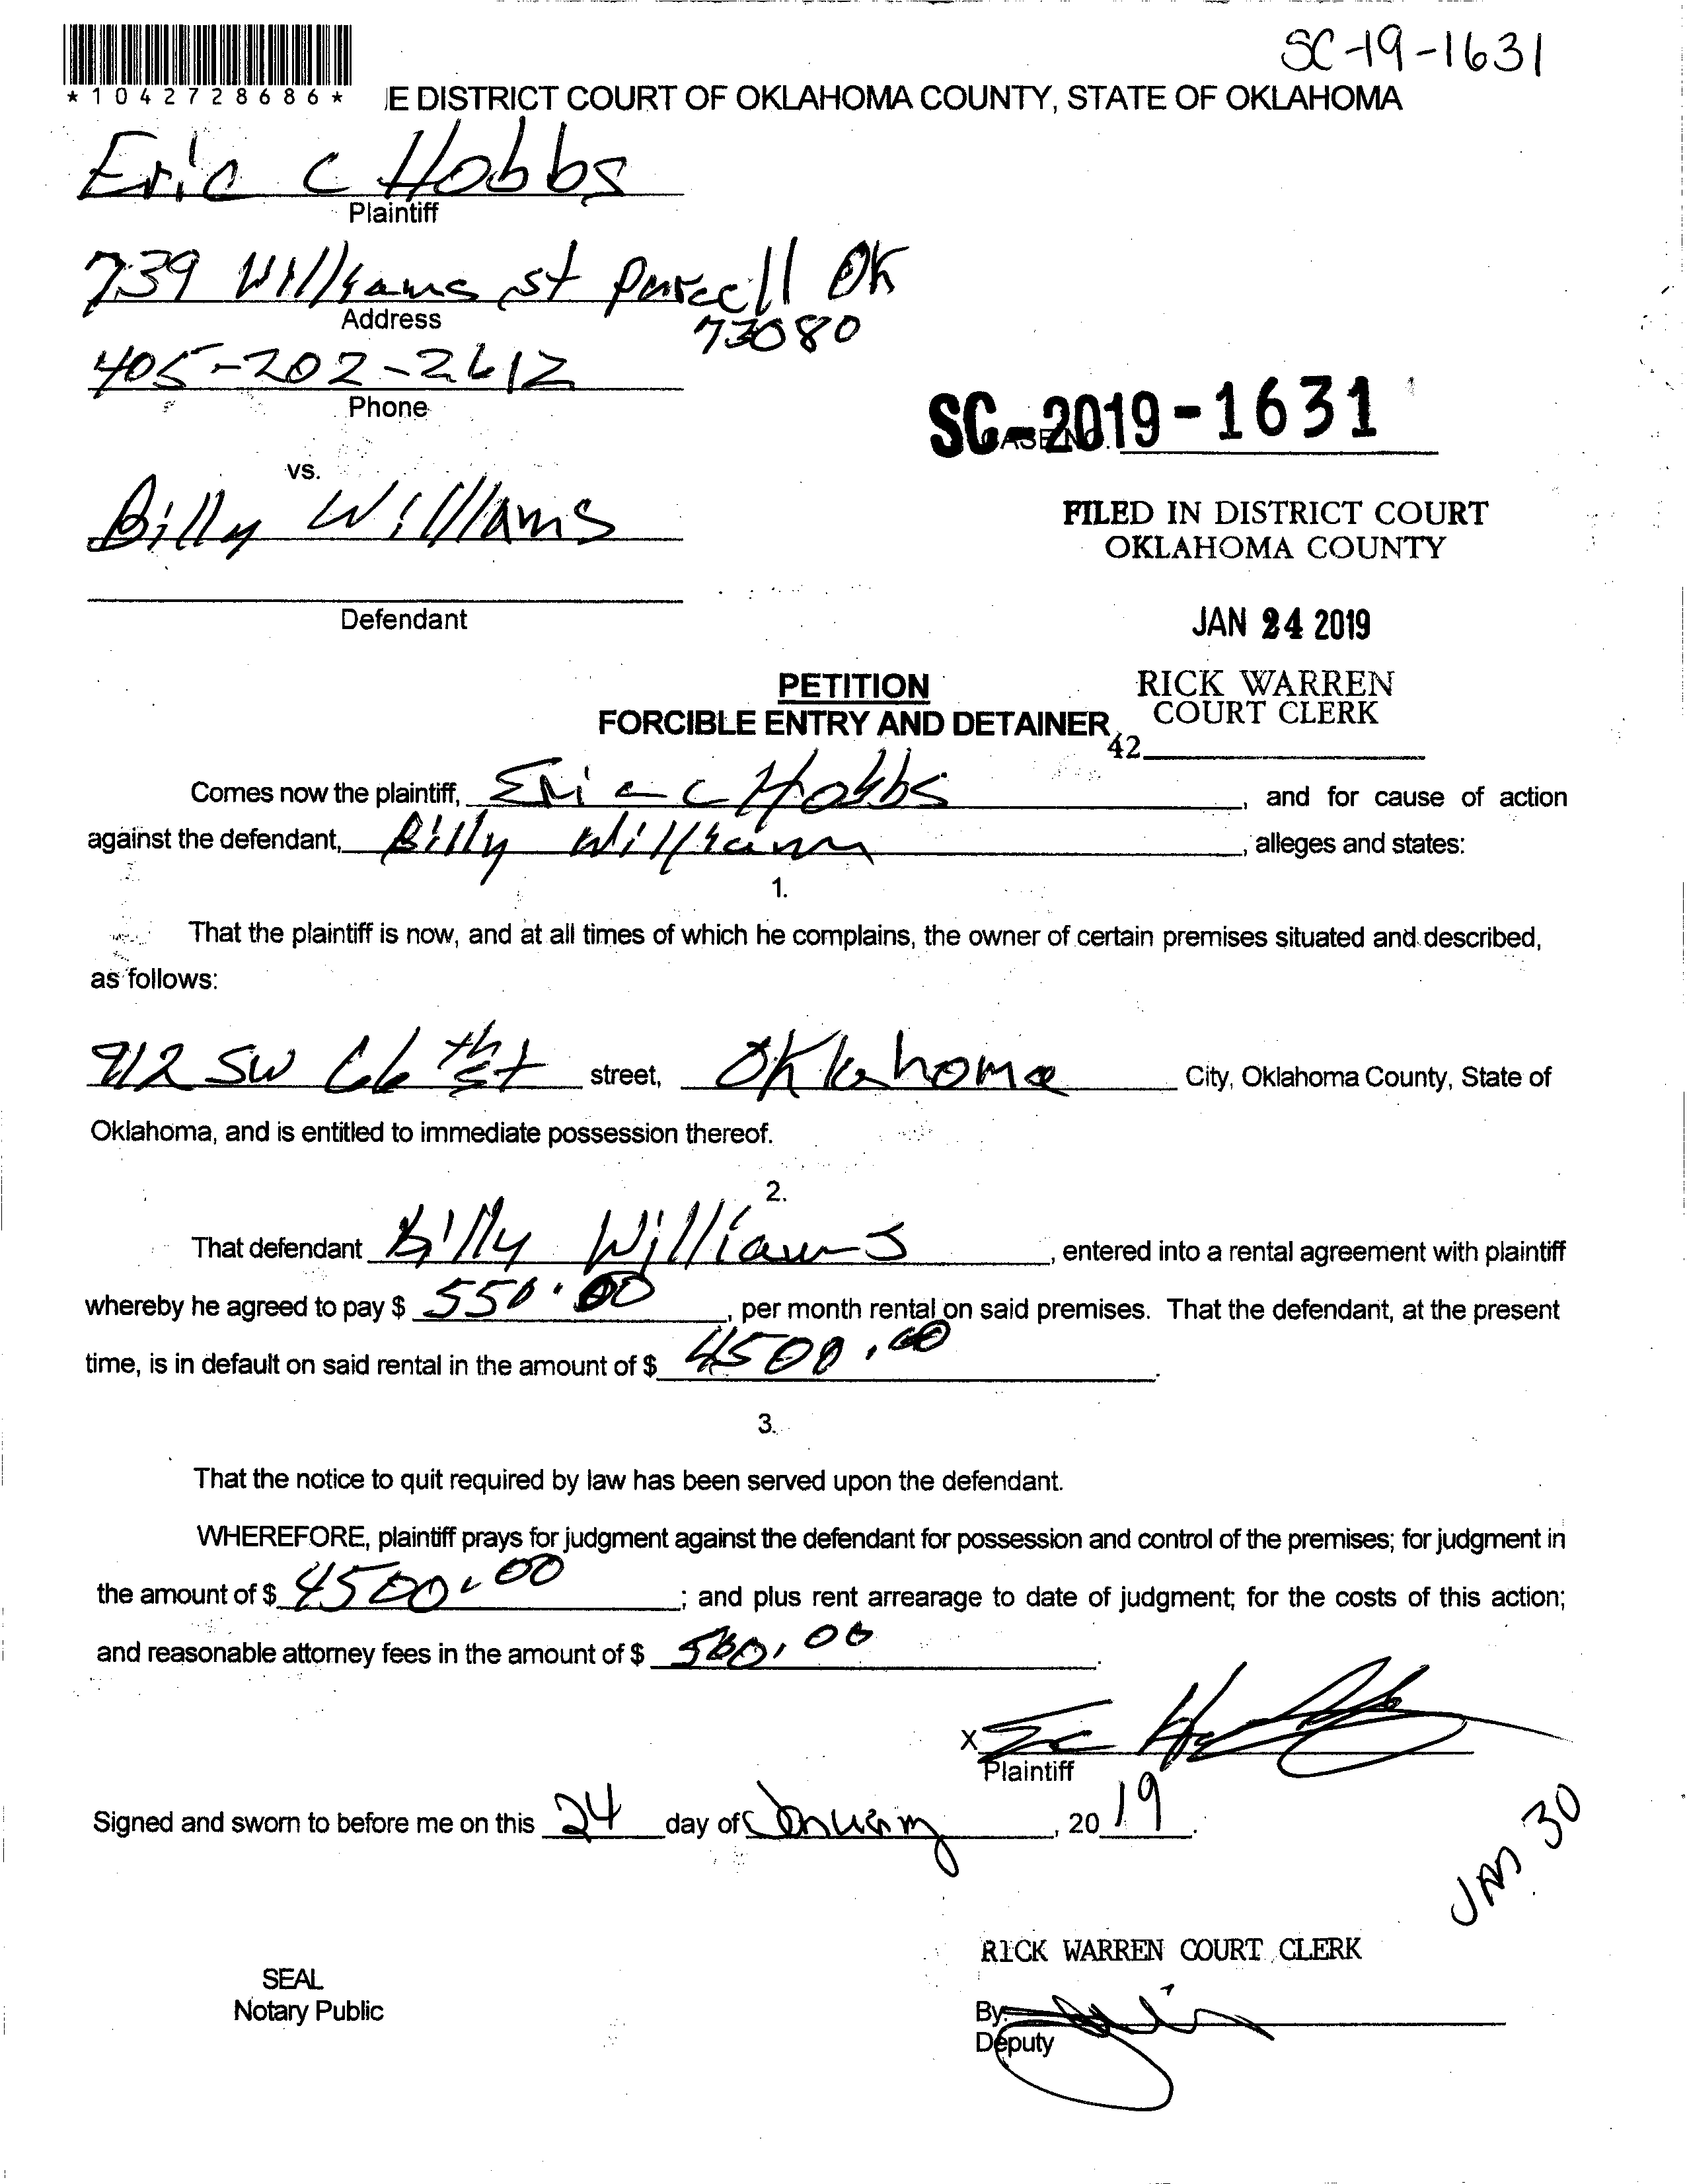 SC-19-1631
*1042728686*
E DISTRICT COURT OF OKLAHOMA COUNTY, STATE OF OKLAHOMA
Eric C Hobbs
Plaintiff
739 Williams st Purcell OK
Address
73080
405-202-2612
Phone
SC-2019-1631
vs.
Billy Williams
FILED IN DISTRICT COURT
OKLAHOMA COUNTY
Defendant
JAN 24 2019
PETITION
RICK WARREN
FORCIBLE ENTRY AND DETAINER
COURT CLERK
42
Comes now the plaintiff, Eric C Hobbs, and for cause of action
against the defendant, Billy Williams, alleges and states:
1.
That the plaintiff is now, and at all times of which he complains, the owner of certain premises situated and described,
as follows:
912 SW 66th St street, Oklahoma City, Oklahoma County, State of
Oklahoma, and is entitled to immediate possession thereof.
2.
That defendant Billy Williams, entered into a rental agreement with plaintiff
whereby he agreed to pay $ 550.00, per month rental on said premises. That the defendant, at the present
time, is in default on said rental in the amount of $ 4500.00.
3.
That the notice to quit required by law has been served upon the defendant.
WHEREFORE, plaintiff prays for judgment against the defendant for possession and control of the premises; for judgment in
the amount of $ 4500.00; and plus rent arrearage to date of judgment; for the costs of this action;
and reasonable attorney fees in the amount of $ 500.00.
X
Plaintiff
Signed and sworn to before me on this 24 day of January, 2019.
JAN 30
RICK WARREN COURT CLERK
SEAL
Notary Public
By:
Deputy